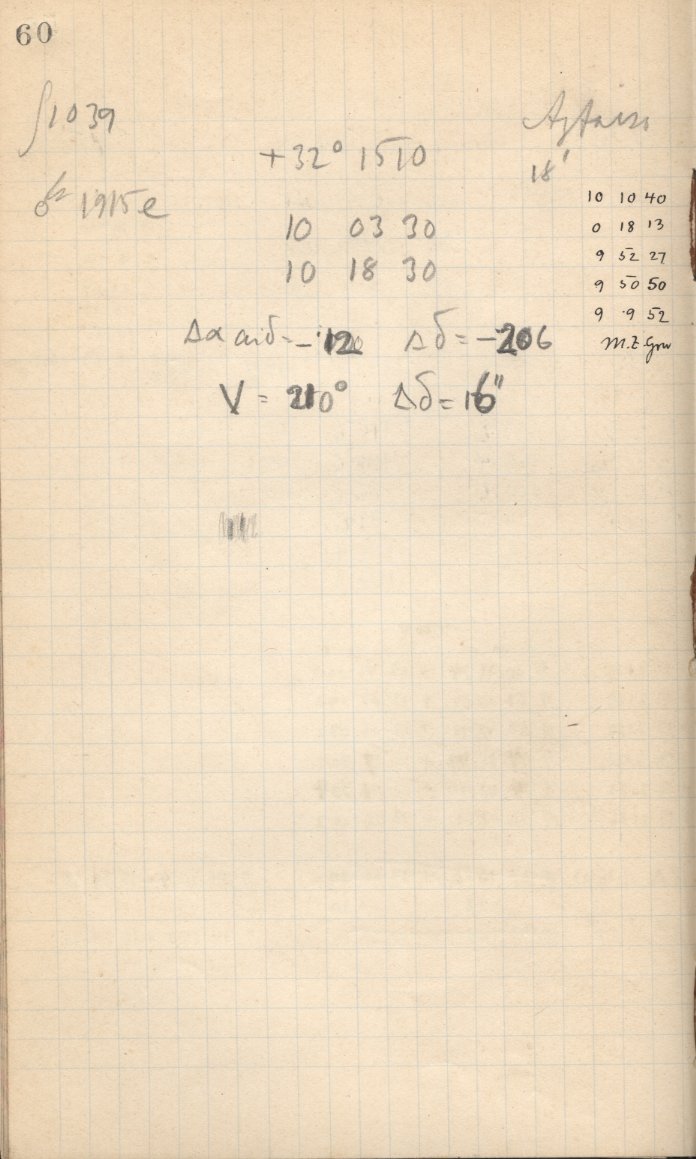 60
∫1039
+32° 15 10
18'
♂ 1915 e
10 03 30
10 18 30
10 10 40
0 18 13
9 52 27
9 50 50
9 9 52
M.Z. Grw
Δα cosδ = -12 Δδ = -206
V = 210° Δδ = 16"